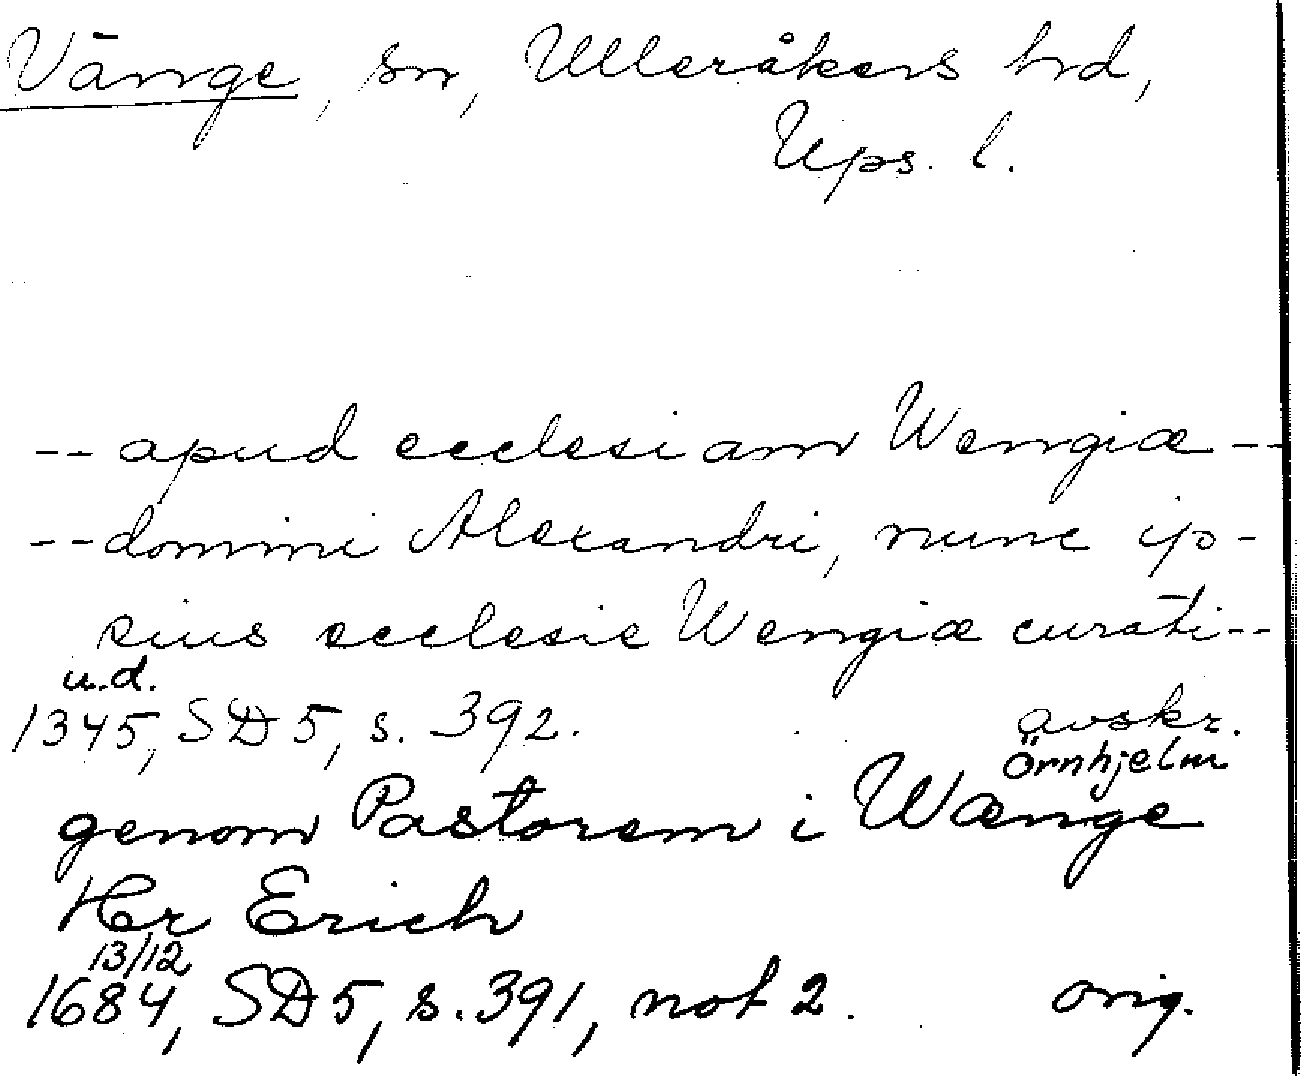 Vänge, sn, Ulleråkers hd,
Ups. l.
-- apud ecclesiam Wengiæ --
-- domini Alexandri, nunc ip-
sius ecclesie Wengiæ curati --
u.d.
1345, SD 5, s. 392. avskr.
Örnhjelm
genom Pastorem i Wænge
Hr Erich
13/12
1684, SD 5, s. 391, not 2. orig.